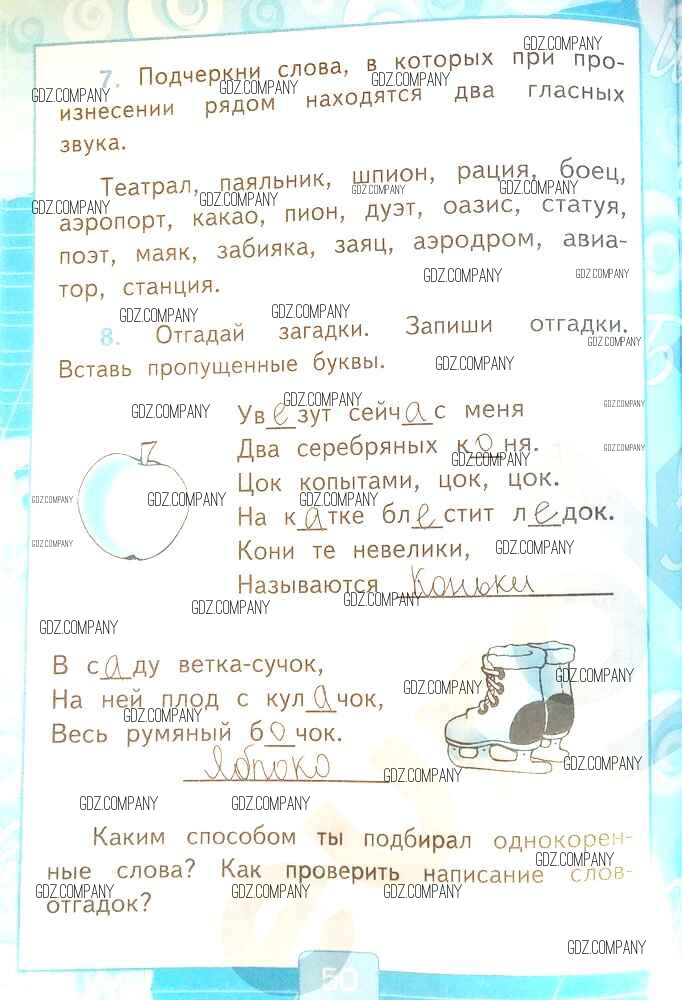 7. Подчеркни слова, в которых при про-
изнесении рядом находятся два гласных
звука.
Театрал, паяльник, шпион, рация, боец,
аэропорт, какао, пион, дуэт, оазис, статуя,
поэт, маяк, забияка, заяц, аэродром, авиа-
тор, станция.
8. Отгадай загадки. Запиши отгадки.
Вставь пропущенные буквы.
Увезут сейчас меня
Два серебряных коня.
Цок копытами, цок, цок.
На катке блестит ледок.
Кони те невелики,
Называются Коньки
В саду ветка-сучок,
На ней плод с кулачок,
Весь румяный бочок.
Яблоко
Каким способом ты подбирал однокорен-
ные слова? Как проверить написание слов-
отгадок?
50
GDZ.COMPANY